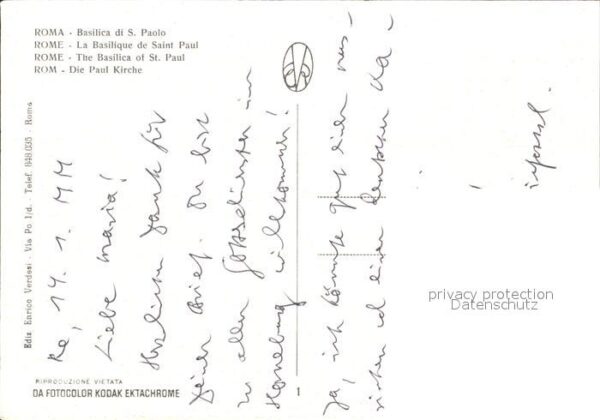 ROMA - Basilica di S. Paolo
ROME - La Basilique de Saint Paul
ROME - The Basilica of St. Paul
ROM - Die Paul Kirche
Ediz Enrico Verdesi - Via Po 1/d. - Telef. 848.035 - Roma
14. 1. MM
Liebe Maria!
Herzlichen Dank für
Deinen Brief. Du bist
zu allen Gottesdiensten im
willkommen!
Ja, ich könnte gut einen rus-
sischen und einen deutschen Ka-
RIPRODUZIONE VIETATA
DA FOTOCOLOR KODAK EKTACHROME
1
privacy protection
Datenschutz